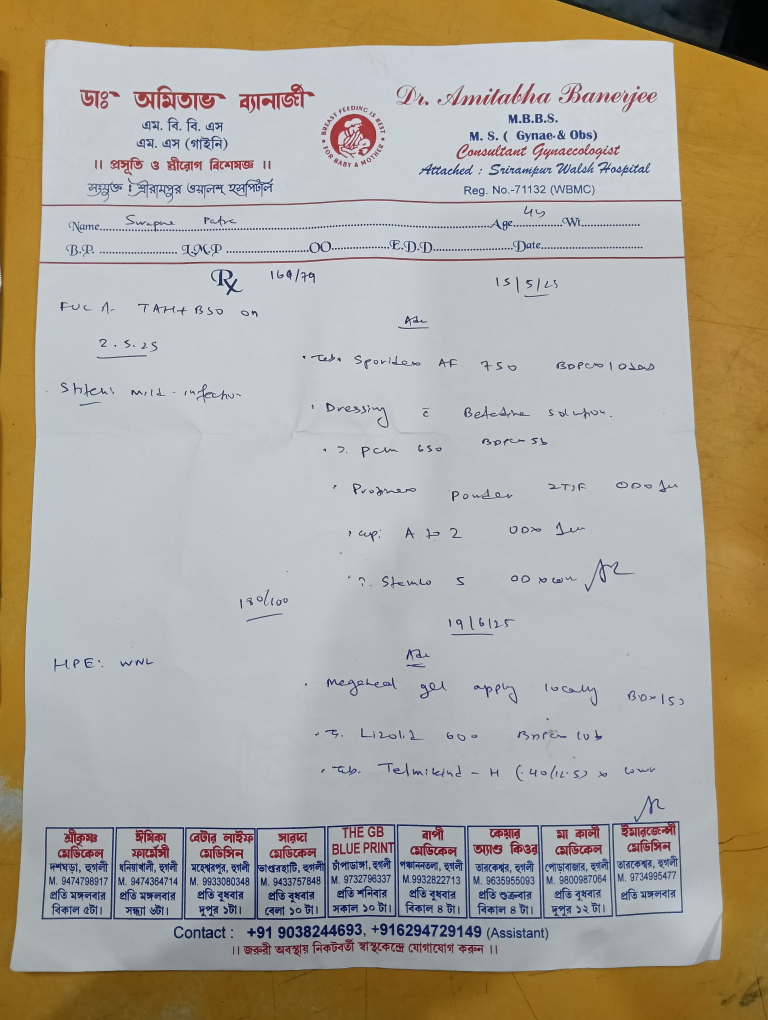 ডাঃ অমিতাভ ব্যানার্জী
এম. বি. বি. এস
এম. এস (গাইনি)
।। প্রসূতি ও স্ত্রীরোগ বিশেষজ্ঞ ।।
সংযুক্ত : শ্রীরামপুর ওয়ালশ হসপিটাল
BREAST FEEDING IS BEST
FOR BABY & MOTHER
Dr. Amitabha Banerjee
M.B.B.S.
M. S. ( Gynae & Obs)
Consultant Gynaecologist
Attached : Srirampur Walsh Hospital
Reg. No.-71132 (WBMC)
Name Swapna Patra Age 44 Wt
B.P. L.M.P OO E.D.D Date
Rx 169/79 15/5/25
TAH+BSO on
2.5.25
Adv
Tab. Sporidex AF 750
Stitch: mild infection
Dressing c̄ Betadine solution.
T. PCM 650
Powder 2TSF
Cap. A to Z
5
180/100
19/6/25
HPE: WNL
Adv
Megaheal gel apply locally
T. Lizolid 600
Tab. Telmikind - H (40/12.5)
শ্রীকৃষ্ণ মেডিকেল
দশঘড়া, হুগলী
M. 9474798917
প্রতি মঙ্গলবার
বিকাল ৫টা।
ঈষিকা ফার্মেসী
ধনিয়াখালী, হুগলী
M. 9474364714
প্রতি মঙ্গলবার
সন্ধ্যা ৬টা।
বেটার লাইফ মেডিসিন
মহেশ্বরপুর, হুগলী
M. 9933080348
প্রতি বুধবার
দুপুর ১টা।
সারদা মেডিকেল
ভাণ্ডারহাটি, হুগলী
M. 9433757848
প্রতি বুধবার
বেলা ১০ টা।
THE GB BLUE PRINT
চাঁপাডাঙ্গা, হুগলী
M. 9732796337
প্রতি শনিবার
সকাল ১০ টা।
বাপী মেডিকেল
পঞ্চাননতলা, হুগলী
M.9932822713
প্রতি বুধবার
বিকাল ৪ টা।
কেয়ার অ্যাণ্ড কিওর
তারকেশ্বর, হুগলী
M. 9635955093
প্রতি শুক্রবার
বিকাল ৪ টা।
মা কালী মেডিকেল
পোড়াবাজার, হুগলী
M. 9800987064
প্রতি বুধবার
দুপুর ১২ টা।
ইমারজেন্সী মেডিকেল
তারকেশ্বর, হুগলী
M. 9734995477
প্রতি মঙ্গলবার
Contact : +91 9038244693, +916294729149 (Assistant)
।। জরুরী অবস্থায় নিকটবর্তী স্বাস্থ্যকেন্দ্রে যোগাযোগ করুন ।।